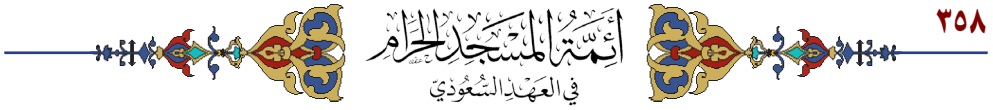 ٣٥٨
أَئِمَّةُ المَسْجِدِ الحَرَامِ
فِي العَهْدِ السُّعُودِيّ